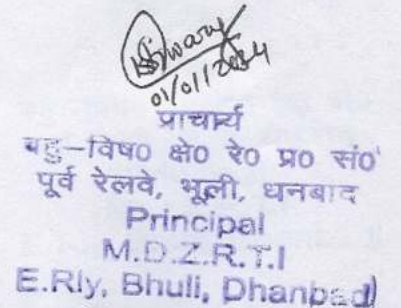 01/01/2024
प्राचार्य
बहु-विष० क्षे० रे० प्र० सं०
पूर्व रेलवे, भूली, धनबाद
Principal
M.D.Z.R.T.I
E.Rly, Bhuli, Dhanbad